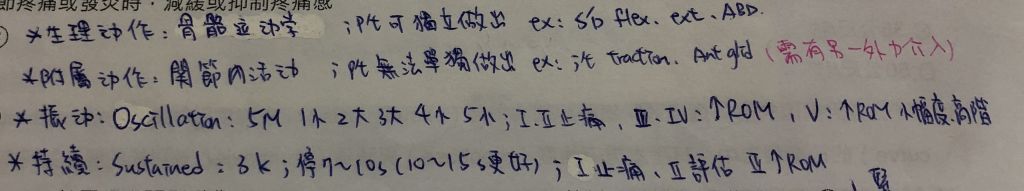 即疼痛或發炎時,減緩或抑制疼痛感
*生理动作:骨骼运动学 ; pt 可獨立做出 ex: s/o flex. ext. ABD.
*附屬动作:関節内活动 ; pt 無法單獨做出 ex: jt traction. Ant gld (需有另一外力介入)
*振动: Oscillation: 5M 1小 2大 3大 4小 5小; I.II止痛, III.IV: ↑ROM, V: ↑ROM 小幅度.高階
*持續: Sustained: 3k; 停7~10s (10~15s更好); I止痛、II評估 III↑ROM